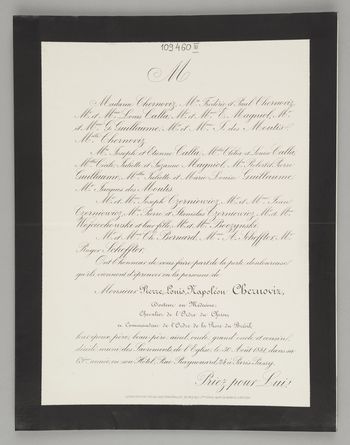 109460 III
M
Madame Chernoviz, Mrs Frédéric et Paul Chernoviz,
Mr et Mme Louis Calla, Mr et Mme E. Magniol, Mr
et Mme G. Guillaume, Mr et Mme J. des Moutis,
Mlle Chernoviz,
Mrs Joseph et Etienne Calla, Mlles et Louise Calla,
Mlles Cécile, Juliette et Suzanne Magniol, Mrs Robert et Pierre
Guillaume, Mlles Juliette et Marie Louise Guillaume,
Mr Jacques des Moutis,
Mr et Mme Joseph Czerniewicz, Mr et Mme Jean
Czerniewicz, Mrs Pierre et Stanislas Czerniewicz, Mr et Mme
Wojciechowski et leur fille, Mr et Mme Brezynski,
Mr et Mme Ch. Bernard, Mme A. Scheffter, Mr
Roger Scheffter,
Ont l'honneur de vous faire part de la perte douloureuse
qu'ils viennent d'éprouver en la personne de
Monsieur Pierre, Louis, Napoléon Chernoviz,
Docteur en Médecine,
Chevalier de l'Ordre du Christ
et Commandeur de l'Ordre de la Rose du Brésil,
leur époux, père, beau-père, aïeul, oncle, grand oncle et cousin,
décédé, muni des Sacrements de l'Église, le 31 Août 1881, dans sa
année, en son Hôtel, Rue Raynouard, 24, à Paris-Passy.
Priez pour Lui!